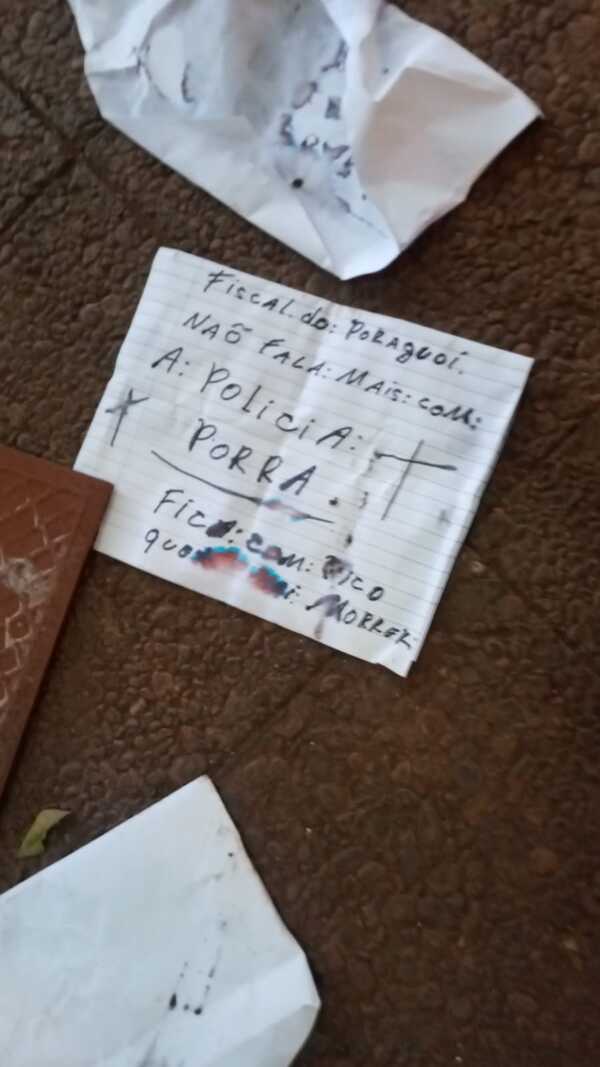 FiSCAL.do: PORAguoi.
NAÕ FALA: MAis: COM:
A: POLiCiA:
PORRA.
FICA: COM: Vico
MORRER